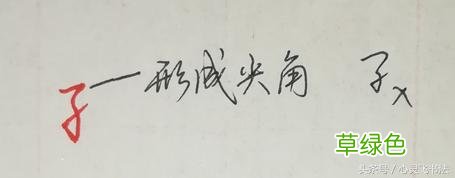 孑一形成尖角 孑x
草绿色
头条号/心灵飞书法